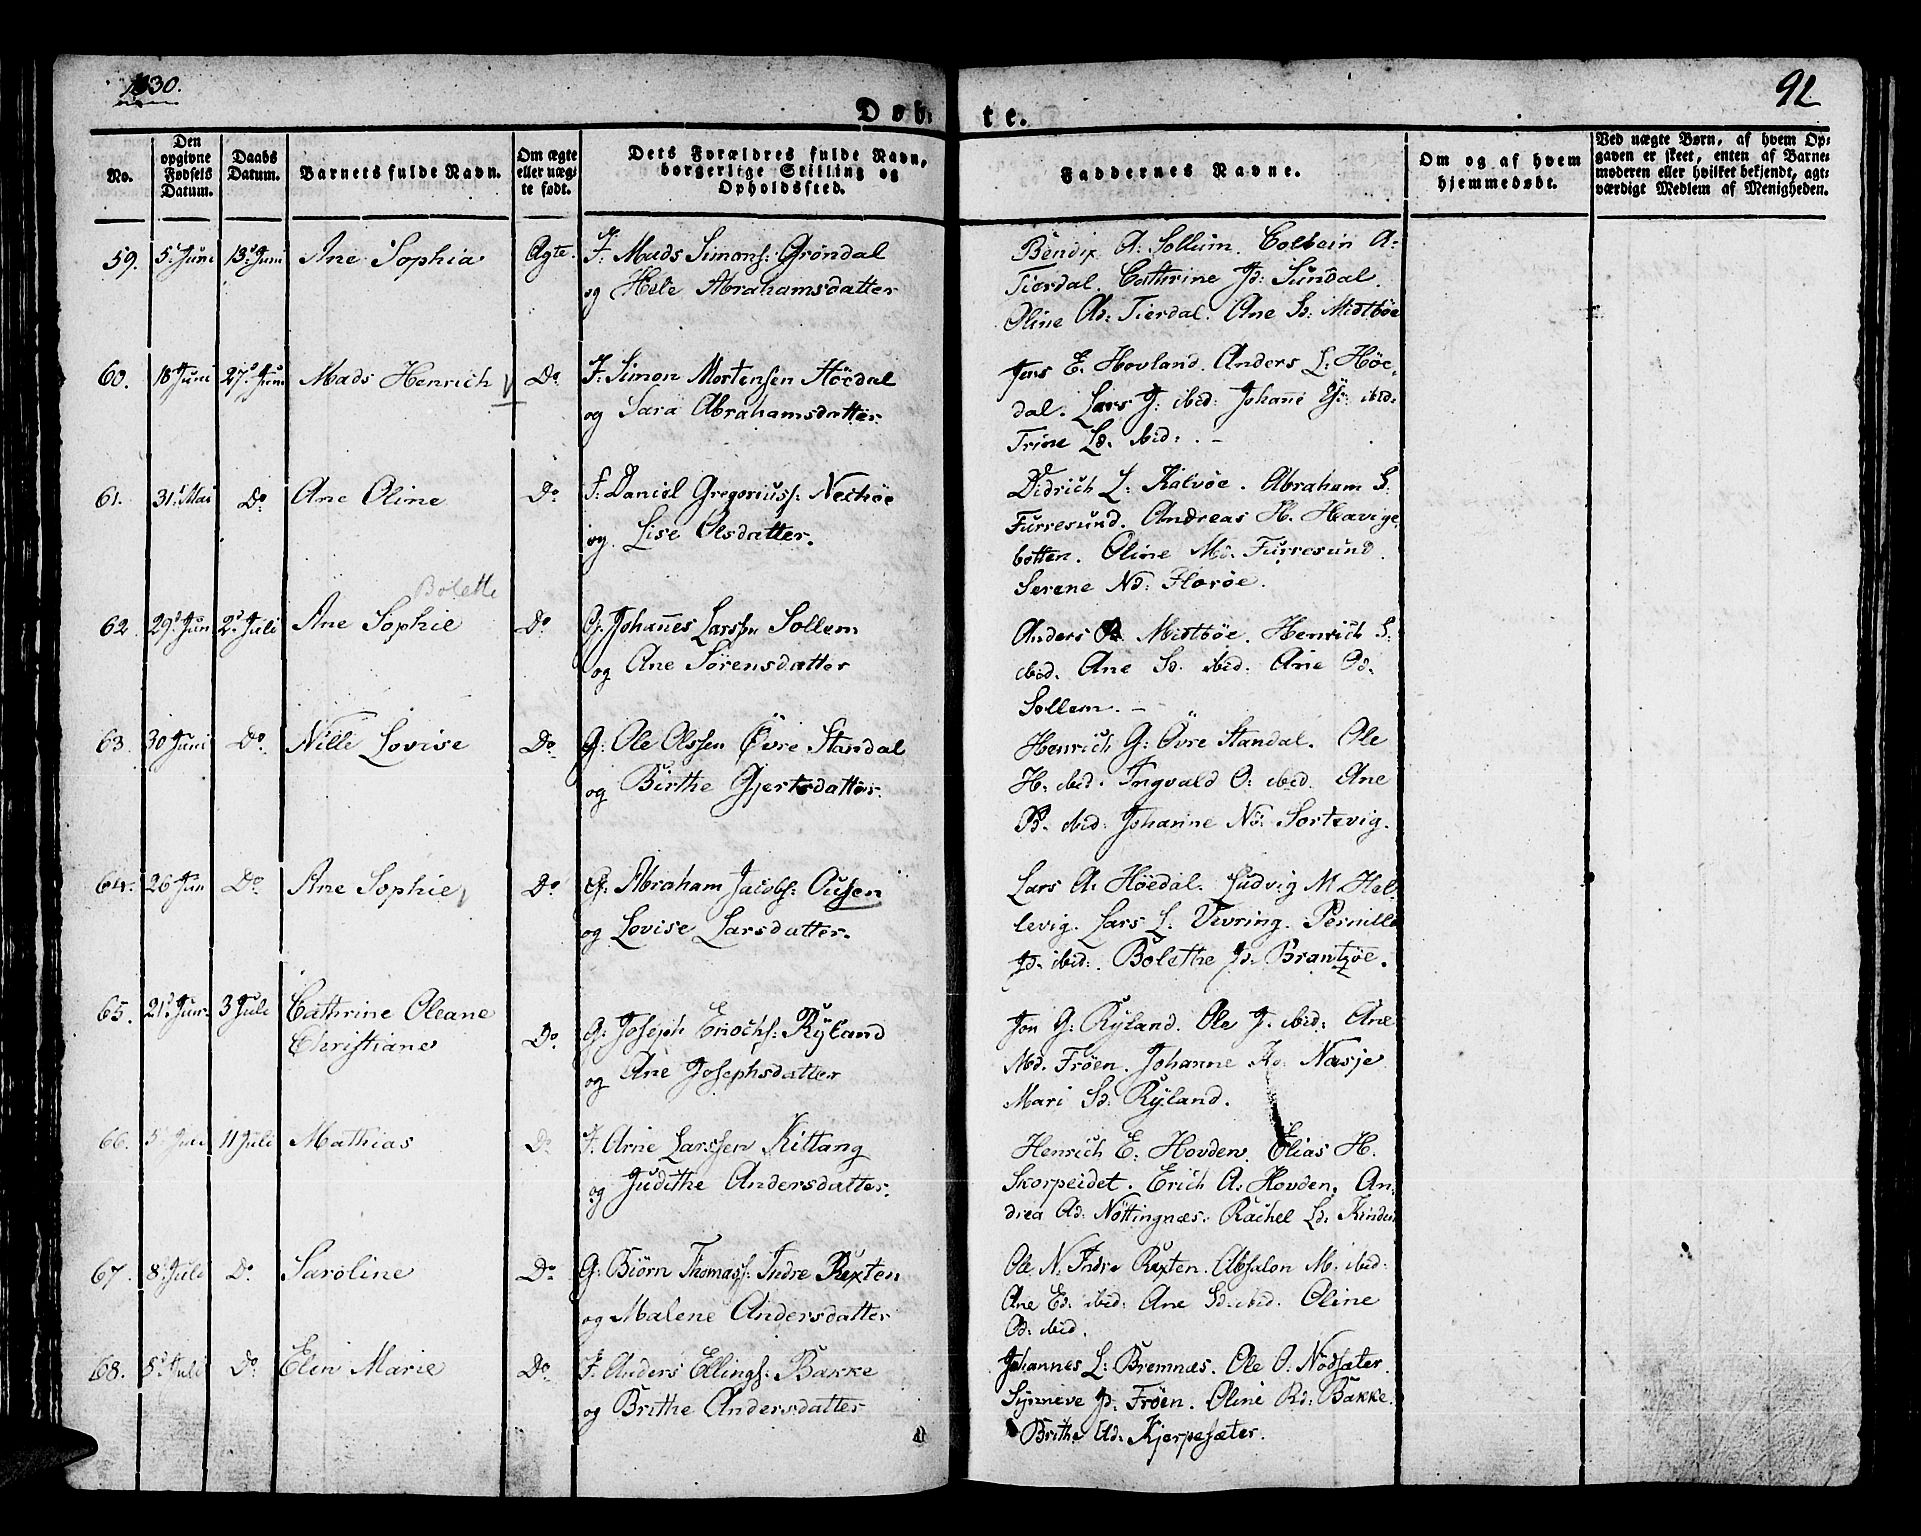 1830.
92
Døb-
te.
No.
Den opgivne Fødsels Datum.
Daabs Datum.
Barnets fulde Navn.
Om ægte eller uægte født.
Dets Forældres fulde Navn, borgerlige Stilling og Opholdssted.
Faddernes Navne.
Om og af hvem hjemmedøbt.
Ved uægte Børn, af hvem Opgaven er skeet, enten af Barnemoderen eller hvilket bekjendt, agtværdigt Medlem af Menigheden.
59. 5' Juni 13' Juni Ane Sophia Ægte. J. Mads Simons: Grøndal
og Hele Abrahamsdatter
Bendix A: Sollum. Colbein A:
Tierdal. Cathrine Jd: Sundal.
Oline Ad: Tierdal. Ane Sd: Mistbøe
60. 18' Juni 27' Juni Mads Henrich Do. J: Simon Mortensen Höedal
og Sara Abrahamsdatter
Jens E. Hovland. Anders L: Höe-
dal. Lars J: ibid: Johane ibid:
Trine Ld. ibid: . -
61. 31' Mai Do. Ane Oline Do. J: Daniel Gregoriuss: Nechöe
og Lise Olsdatter.
Didrich L: Kalvöe. Abraham S:
Furresund. Andreas H. Heavige
botten. Oline Md. Furresund.
Serene Nd: Florøe.
Bolette
62. 29' Jun 2' Juli Ane Sophie Do. G: Johannes Larssen Sollem
og Ane Sørensdatter
Anders Mistbøe. Henrich S:
ibid. Ane Sd. ibid: Ane Od.
Sollem. -
63. 30 Juni Do. Nille Lovise Do. G: Ole Olssen Övre Standal
og Birthe Gjertsdatter.
Henrich G: Övre Standal. Ole
H: ibid: Ingvald O: ibid. Ane
ibid: Johanne Nd: Sortevig.
64. 26 Jun Do. Ane Sophie Do. G: Abraham Jacobs: Ousen
og Lovise Larsdatter.
Lars A: Höedal. Ludvig M. Hel-
levig. Lars L. Vevring. Pernille
Jd. ibid: . Bolethe Jd: Brantzöe.
65. 21' Jun. 3 Juli Cathrine Oleane
Christiane Do. G: Joseph Enochs: Rÿland
og Ane Josephsdatter
Jon G: Rÿland. Ole J. ibid: Ane
Md. Fröen. Johanne Næsje
Mari Sd: Rÿland.
66. 5' 11 Juli Mathias Do. J. Arne Larssen Kittang
og Judithe Andersdatter.
Henrich E: Hovden. Elias H.
Skorpeidet. Erich A: Hovden. An-
drea Ad: Nöttingnæs. Rachel Ld: Kinden
67. 8' Juli Do. Saroline Do. G: Biörn Thomass: Indre Rexten
og Malene Andersdatter
Ole N. Indre Rexten. Absalon M: ibid:
Ane Ed: ibid: Ane Sd: ibid. Oline
Od. ibid.
68. 8' Juli Do. Elen Marie Do. J. Anders Ellings: Bakke
og Brithe Andersdatter
Johannes L: Bremnæs. Ole O. Nödsæter.
Synneve Fröen. Oline Rd: Bakke.
Brithe Ad: Kjerpesæter.